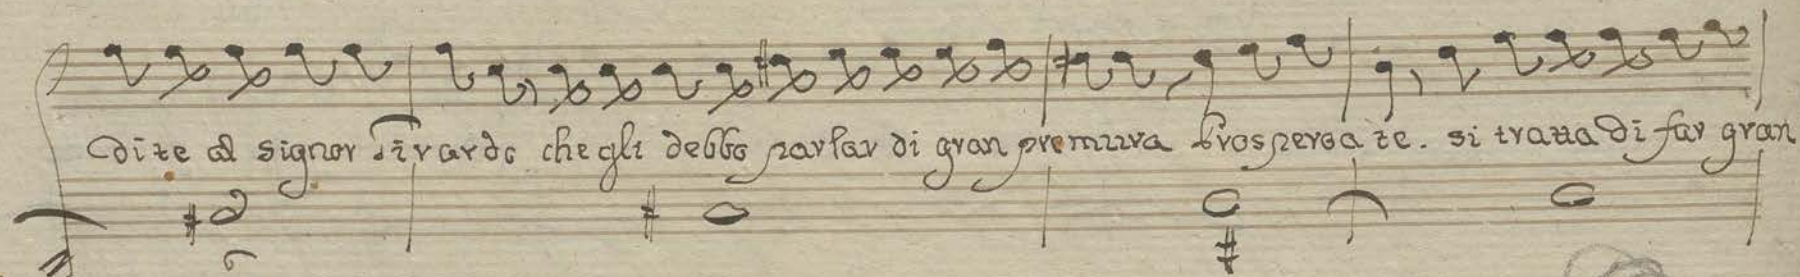 dite al signor Sirardo che gli debbo parlar di gran premura Prospero a te. si tratta di far gran